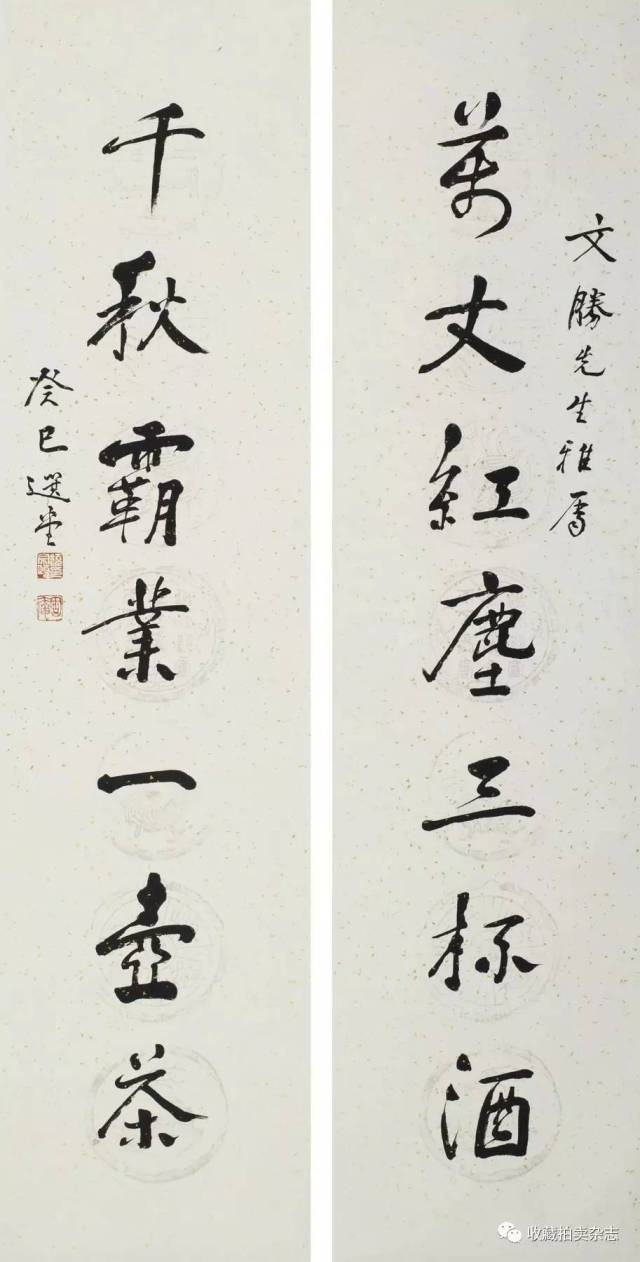 萬丈紅塵三杯酒
文勝先生雅屬
千秋霸業一壺茶
癸巳選堂
收藏拍卖杂志